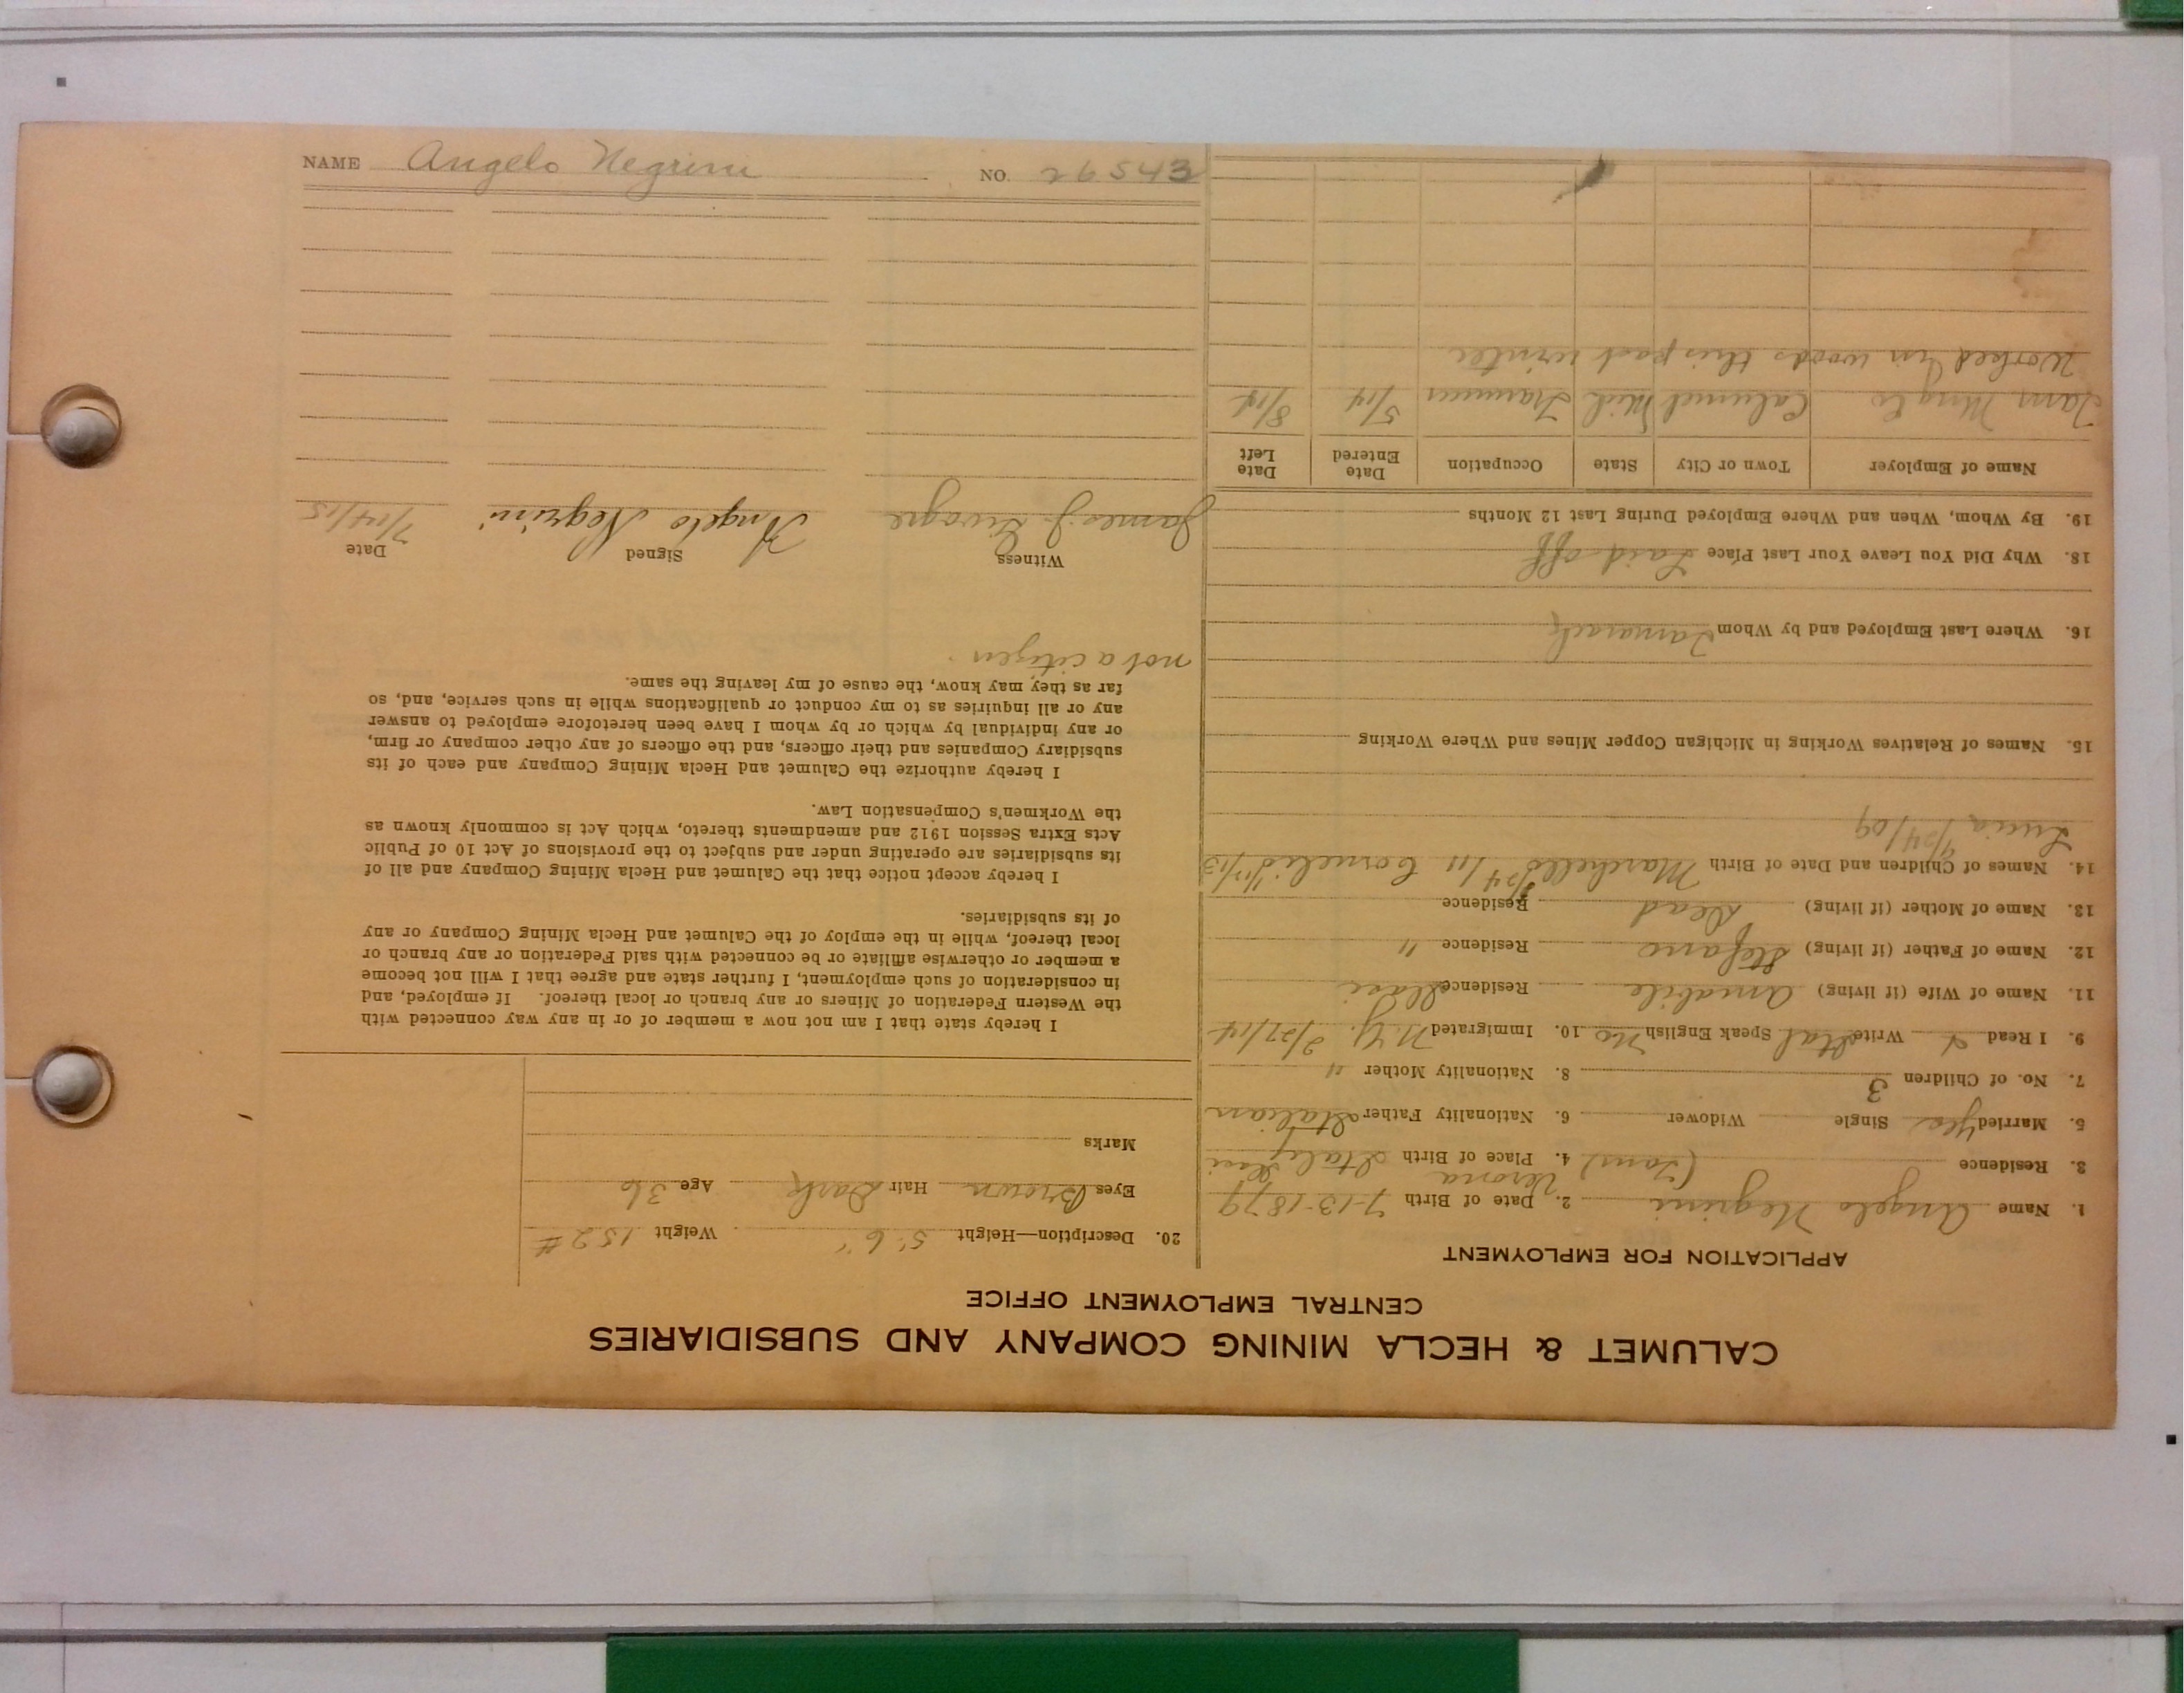 NAME Angelo Negrini NO. 26543
CALUMET & HECLA MINING COMPANY AND SUBSIDIARIES
CENTRAL EMPLOYMENT OFFICE
APPLICATION FOR EMPLOYMENT
1. Name Angelo Negrini 2. Date of Birth 7-13-1879
Verona
3. Residence (Tam) 4. Place of Birth Italy
5. Married Yes Single Widower 6. Nationality Father Italian
7. No. of Children 3 8. Nationality Mother "
9. I Read Write Ital Speak English No 10. Immigrated N.Y. 2/27/14
11. Name of Wife (if living) Amabile Residence
12. Name of Father (if living) Stefano Residence "
13. Name of Mother (if living) Dead Residence
14. Names of Children and Date of Birth Marchello 3/24/11 Cornelio 1/17/13
Lucia 4/24/09
15. Names of Relatives Working in Michigan Copper Mines and Where Working
16. Where Last Employed and by Whom Tamarack
18. Why Did You Leave Your Last Place Laid off
19. By Whom, When and Where Employed During Last 12 Months
Name of Employer Town or City State Occupation Date Entered Date Left
Tam Mng Co Calumet Mich Trammer 5/14 8/14
Worked in woods this past winter
20. Description—Height 5' 6" Weight 152 #
Eyes Brown Hair Dark Age 36
Marks
I hereby state that I am not now a member of or in any way connected with
the Western Federation of Miners or any branch or local thereof. If employed, and
in consideration of such employment, I further state and agree that I will not become
a member or otherwise affiliate or be connected with said Federation or any branch or
local thereof, while in the employ of the Calumet and Hecla Mining Company or any
of its subsidiaries.
I hereby accept notice that the Calumet and Hecla Mining Company and all of
its subsidiaries are operating under and subject to the provisions of Act 10 of Public
Acts Extra Session 1912 and amendments thereto, which Act is commonly known as
the Workmen's Compensation Law.
I hereby authorize the Calumet and Hecla Mining Company and each of its
subsidiary Companies and their officers, and the officers of any other company or firm,
or any individual by which or by whom I have been heretofore employed to answer
any or all inquiries as to my conduct or qualifications while in such service, and, so
far as they may know, the cause of my leaving the same.
not a citizen.
Witness Signed Date
James J. Angelo Negrini 7/14/15